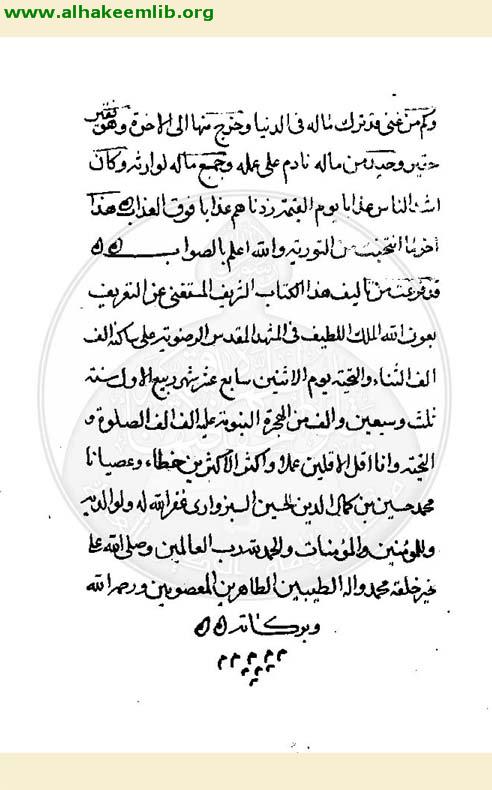 www.alhakeemlib.org
وكم من غنى قد ترك ماله فى الدنيا وخرج منها الى الاخرة وهو فقير
حقير وحيد من ماله نادم على عمله وجمع ماله لوارثه وكان
اشد الناس عذابا يوم القيمة زدناهم عذابا فوق العذاب هذا
اخر ما انتخبت من التورية والله اعلم بالصواب
قد فرغت من تاليف هذا الكتاب الشريف المستغنى عن التعريف
بعون الله الملك اللطيف فى المشهد المقدس الرضوية على ساكنه الف
الف الثناء والتحية يوم الاثنين سابع عشر شهر ربيع الاول سنة
ثلث وسبعين والف من الهجرة النبوية عليه الف الف الصلوة و
التحية وانا اقل الاقلين عملا واكثر الاكثرين خطاء وعصيانا
محمد حسين بن كمال الدين الحسين السبزوارى غفر الله له ولوالديه
وللمؤمنين والمؤمنات والحمد لله رب العالمين وصلى الله على
خير خلقه محمد واله الطيبين الطاهرين المعصومين ورحمة الله
وبركاته